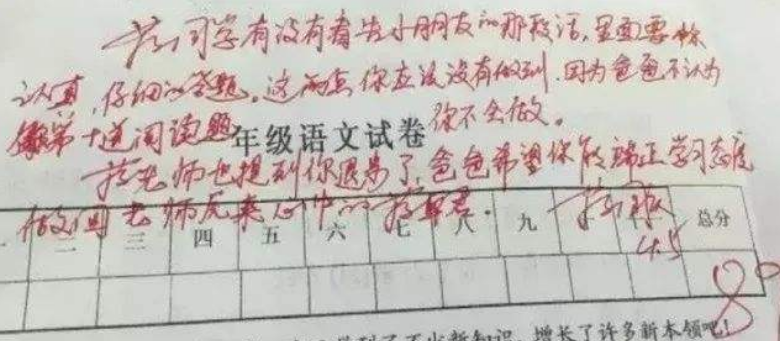 同学有没有看告小朋友的那段话,里面要你
认真,仔细的答题。这两点你应该没有做到,因为爸爸不认为
第十道阅读题 你不会做。
年级语文试卷
老师也提到你退步了,爸爸希望你能端正学习态度
做回老师 心中的
二 三 四 五 六 七 八 九 总分
4.5
80
学到了不少新知识,增长了许多新本领吧!